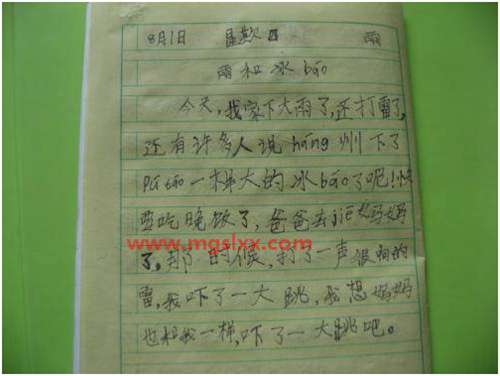 8月1日 星期日 雨
雨和冰báo
今天,我家下大雨了,还打雷了,
还有许多人说háng州下了
pú táo一样大的冰báo了呢!快
要吃晚饭了,爸爸去jiē妈妈
www.mgslxx.com
了,那时候,打了一声很响的
雷,我吓了一大跳,我想妈妈
也和我一样,吓了一大跳吧。